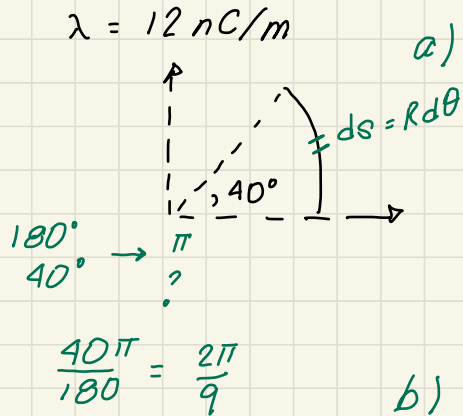 λ = 12 nC/m
a)
ds = Rdθ
40°
180° → π
40° ?
40π/180 = 2π/9
b)